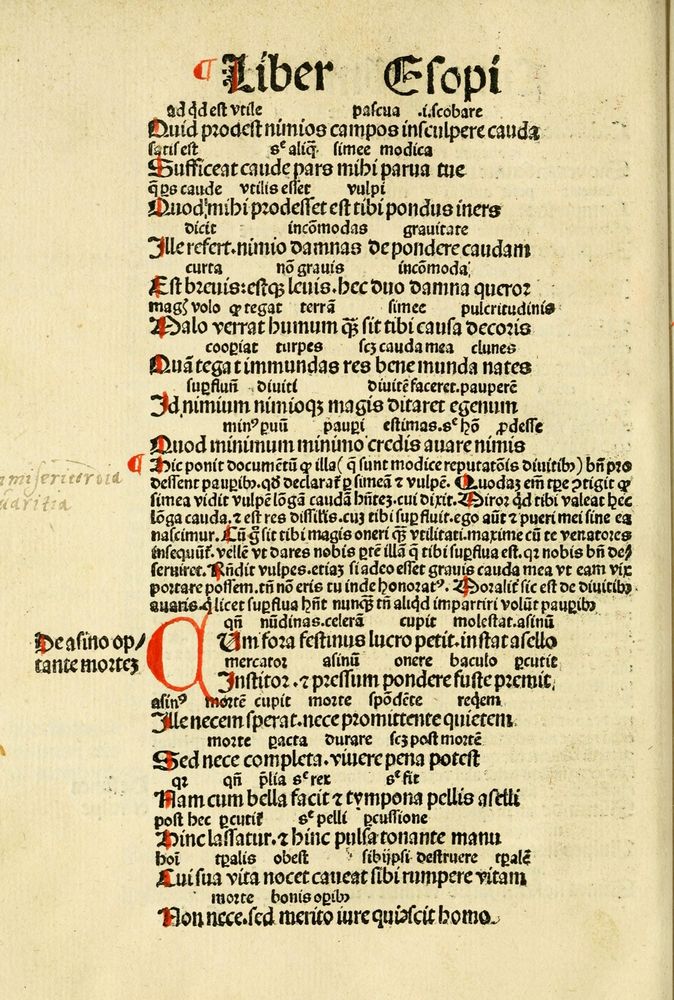 ¶ Liber Esopi
ad qd̓ est vtile pascua .i. scobare
Quid prodest nimios campos insculpere cauda
satis est sᶜ aliq̄ simee modica
Sufficeat caude pars mihi parua tue
q̄ ꝑs caude vtilis esset vulpi
Quod mihi prodesset est tibi pondus iners
dicit incōmodas grauitate
Ille refert. nimio damnas de pondere caudam
curta nō grauis incōmoda
Est breuis: estqꝫ leuis. hec duo damna queror
magꝭ volo ꝙ tegat terrā simee pulcritudinis
Malo verrat humum q̄ꝫ sit tibi causa decoris
cooꝑiat turpes scꝫ cauda mea clunes
Quā tegat immundas res bene munda nates
suꝑfluū diuiti diuitē faceret. pauperē
Id nimium nimioqꝫ magis ditaret egenum
minꝰ ꝑuū pauꝑi estimas. sᶜ hō ꝓdesse
Quod minimum minimo credis auare nimis
¶ Hic ponit documētū ꝙ illa ( q̄ sunt modice reputatōnis diuitibꝰ ) bn̄ pro
dessent pauꝑibꝰ. qd̓ declarat̄ ꝑ simeā ⁊ vulpē. Quodaꝫ em̄ tꝑe ꝯtigit ꝙ
simea vidit vulpē lōgā caudā hn̄teꝫ. cui dixit. Miror qd̓ tibi valeat hec
lōga cauda. ⁊ est res dissilis. cuꝫ tibi suꝑfluit. ego aūt ⁊ pueri mei sine ea
nascimur. Cū g̊ sit tibi magis oneri q̄ꝫ vtilitati. maxime cū te venatores
insequūt̄. vellē vt dares nobis ꝑtē illā q̄ tibi suꝑflua est. qꝛ nobis bn̄ de/
seruiret. Rn̄dit vulpes. etiaꝫ si adeo esset grauis cauda mea vt eam vix
portare possem. tn̄ nō eris tu inde honoratꝰ. Moralit̓ sic est de diuitibꝰ
auaris. q̇ licet suꝑflua hn̄t nunqꝫ tn̄ aliqd̓ impartiri volūt pauꝑibꝰ
qn̄ nūdinas. celerā cupit molestat. asinū
De asino op/
tante morteꝫ
CUm fora festinus lucro petit. instat asello
mercator asinū onere baculo ꝑcutit
Institor. ⁊ pressum pondere fuste premit
asinꝰ mortē cupit morte spōdēte reqem̄
Ille necem sperat. nece promittente quietem
morte ꝑacta durare scꝫ post mortē
Sed nece completa. viuere pena potest
qꝛ qn̄ p̄lia sᶜ rex sᶜ fit
Nam cum bella facit ⁊ tympona pellis aselli
post hec ꝑcutit̄ sᶜ pelli ꝑcussione
Hinc lassatur. ⁊ hinc pulsa tonante manu
hoī tꝑalis obest sibijpsi destruere tꝑalē
Cui sua vita nocet caueat sibi rumpere vitam
morte bonis oꝑibꝰ
Non nece. sed merito iure quiescit homo.